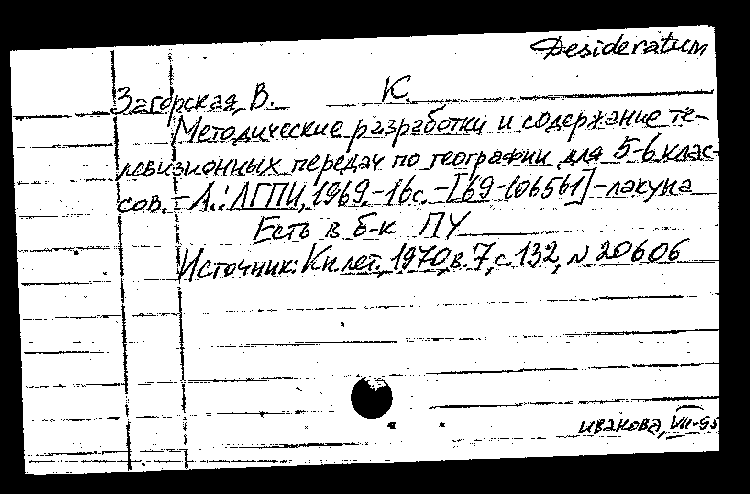 Desideratum
Загорская, В. К.
Методические разработки и содержание те-
левизионных передач по географии для 5-6 клас-
сов. - Л.: ЛГПИ, 1969. - 16с. - [69-106561] - лакуна
Есть в б-к ПУ
Источник: Кн. лет., 1970, в. 7, с. 132, № 20606
ивакова, VII-95